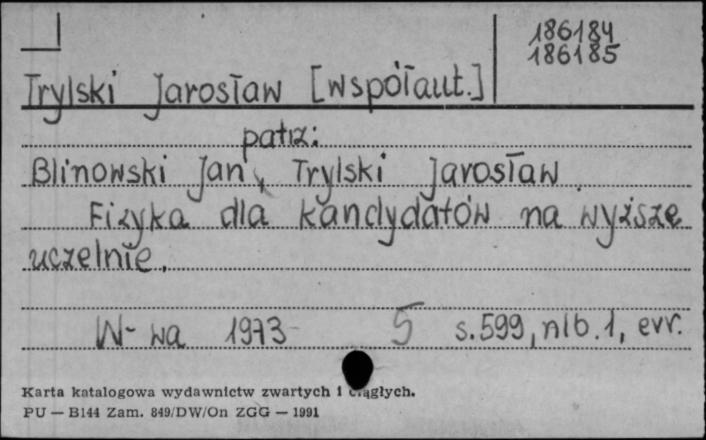 186184
186185
Trylski Jarosław [współaut.]
patrz:
Blinowski Jan, Trylski Jarosław.
Fizyka dla kandydatów na wyższe
uczelnie.
W-wa 1973 5 s.599, nlb.1, err.
Karta katalogowa wydawnictw zwartych i ciągłych.
PU — B144 Zam. 849/DW/On ZGG — 1991